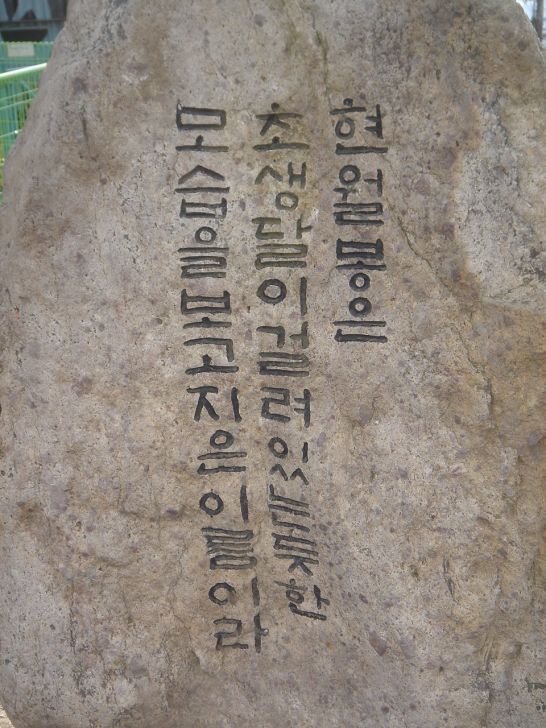 현월봉은
초생달이걸려있는듯한
모습을보고지은이름이라